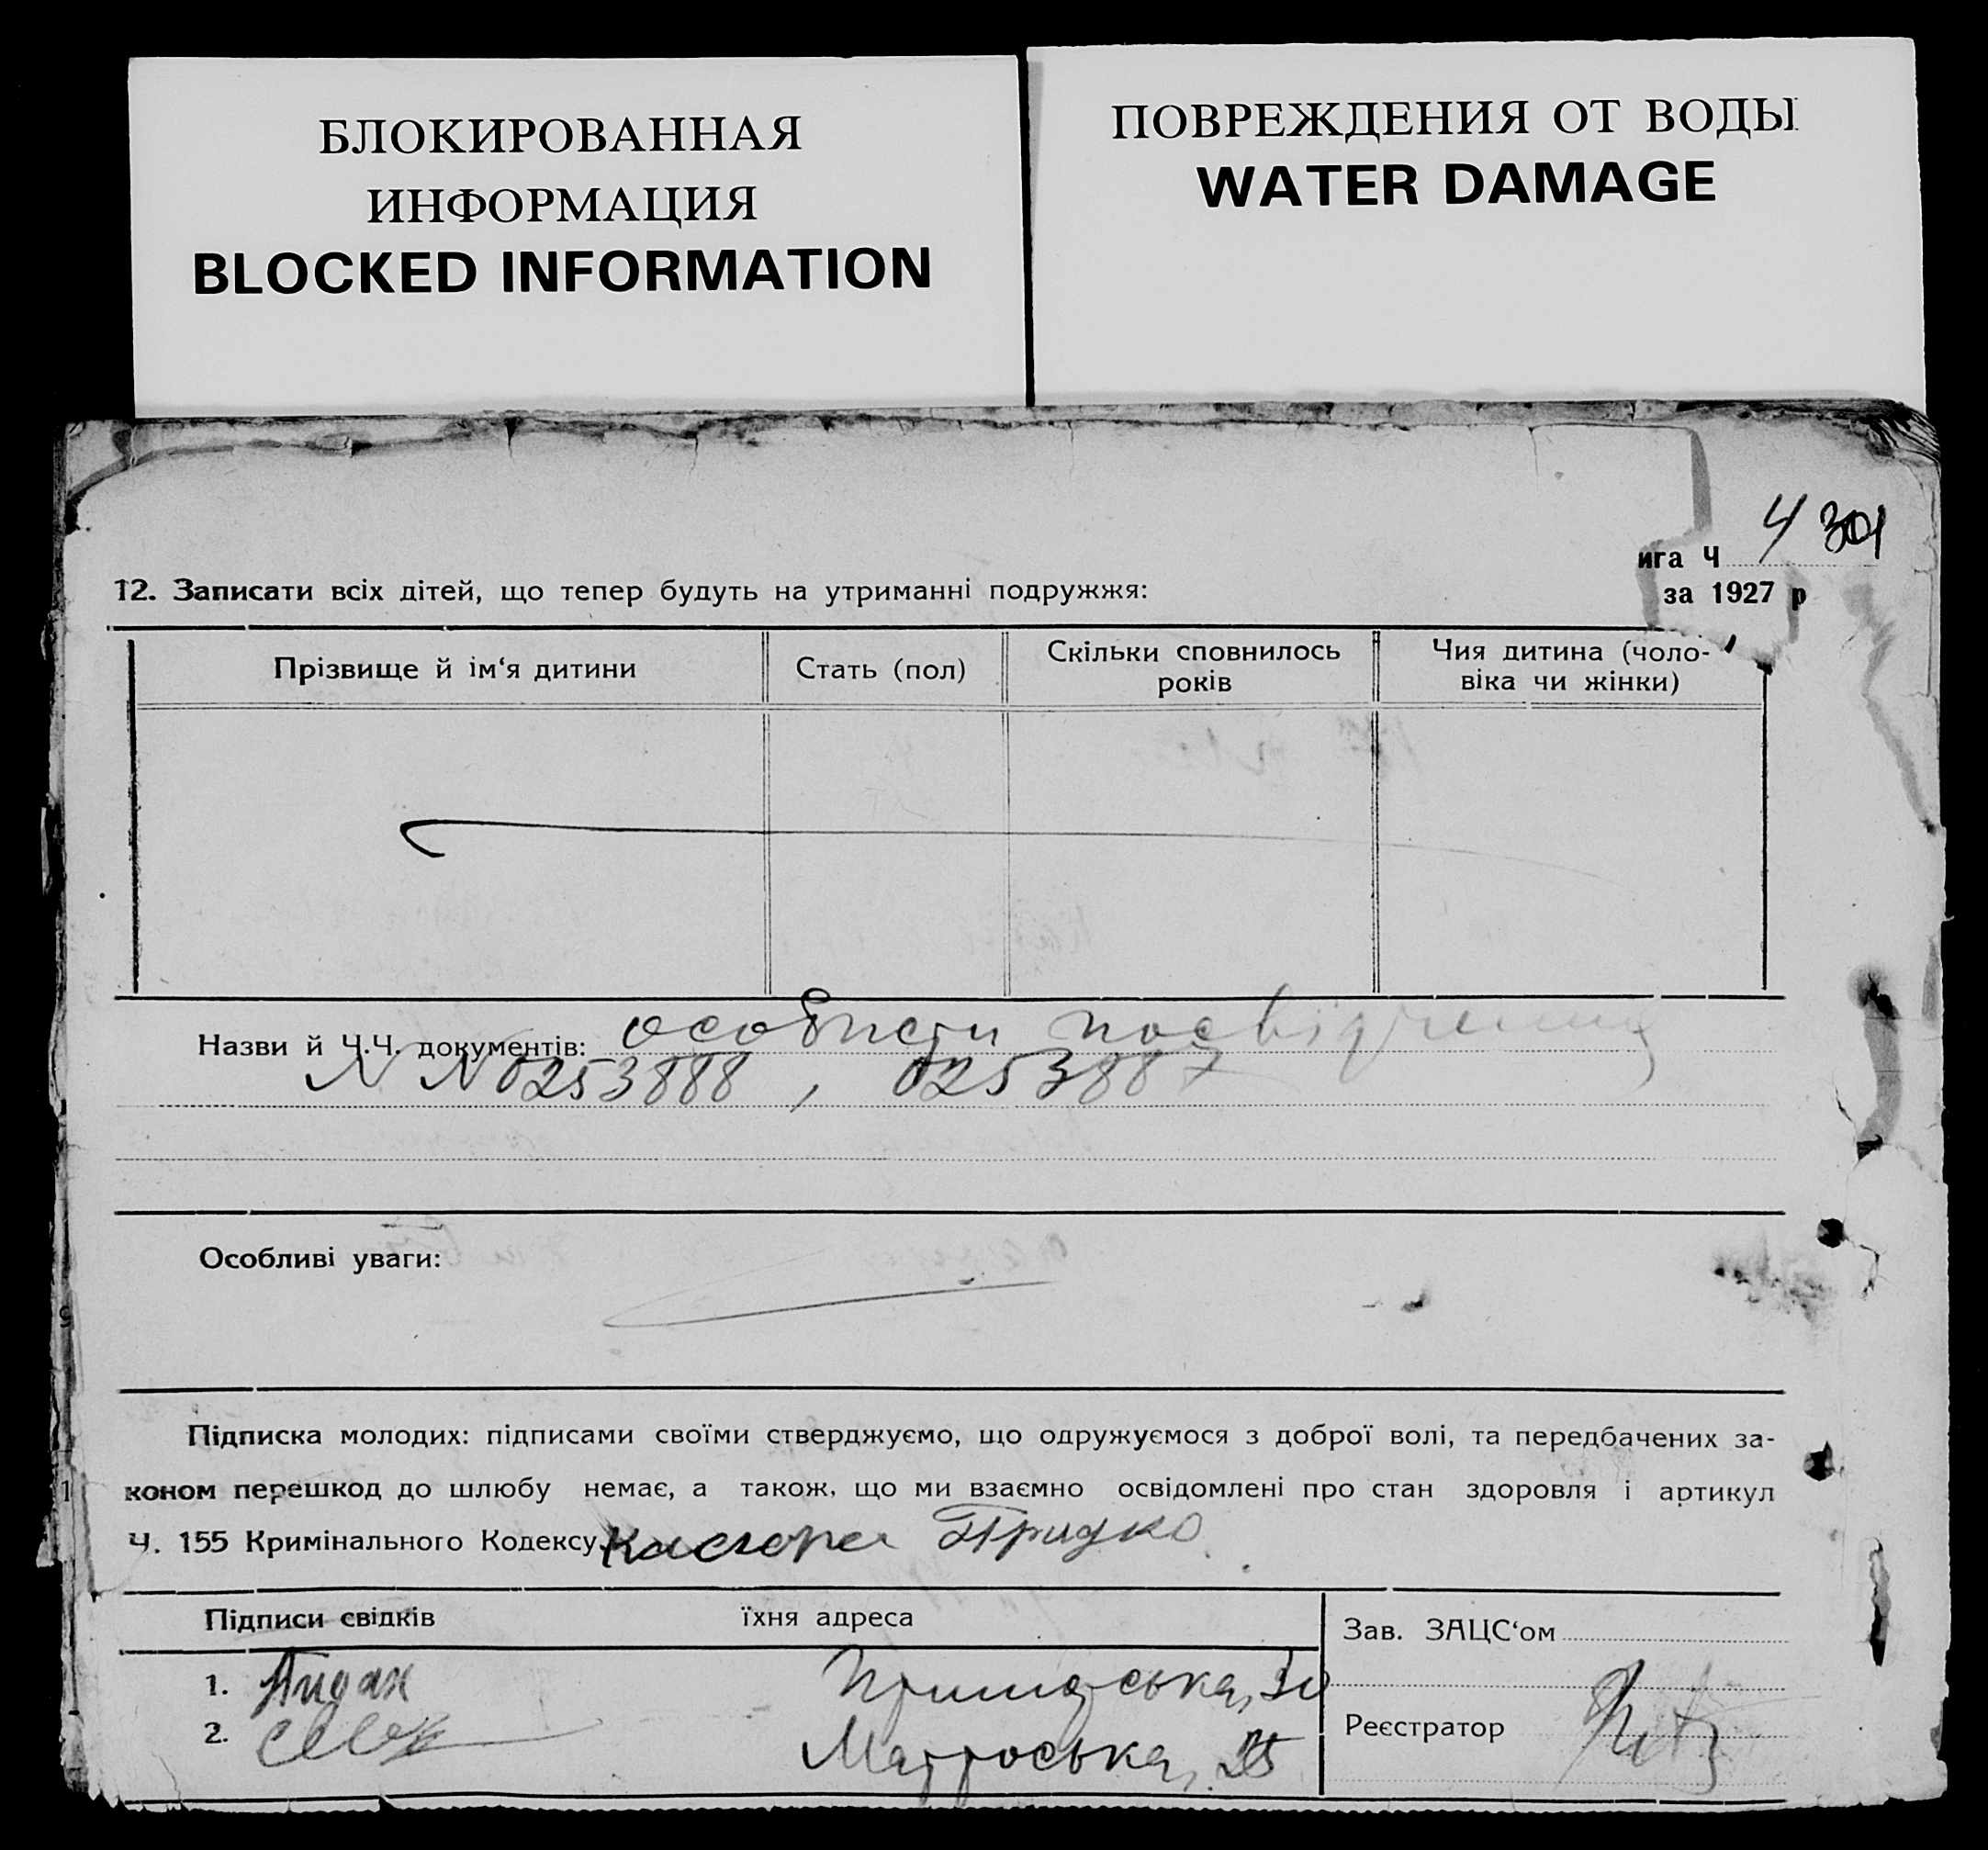 БЛОКИРОВАННАЯ
ИНФОРМАЦИЯ
BLOCKED INFORMATION
ПОВРЕЖДЕНИЯ ОТ ВОДЫ
WATER DAMAGE
ига Ч 4 301
за 1927 р
12. Записати всіх дітей, що тепер будуть на утриманні подружжя:
Прізвище й ім‘я дитини
Стать (пол)
Скільки сповнилось
років
Чия дитина (чоло-
віка чи жінки)
Назви й Ч.Ч. документів: особисти посвідчення
N N 0253888, 0253887
Особливі уваги:
Підписка молодих: підписами своїми стверджуємо, що одружуємося з доброї волі, та передбачених за-
коном перешкод до шлюбу немає, а також, що ми взаємно освідомлені про стан здоровля і артикул
Ч. 155 Кримінального Кодексу Придко
Підписи свідків їхня адреса
Зав. ЗАЦС‘ом
1. 30
2. Матроська, 25
Реєстратор